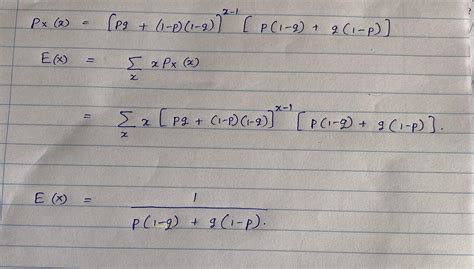 Px(x) = [pq + (1-p)(1-q)]^{x-1} [p(1-q) + q(1-p)]
E(x) = Σ_x x Px(x)
= Σ_x x [pq + (1-p)(1-q)]^{x-1} [p(1-q) + q(1-p)].
E(x) = 1 / (p(1-q) + q(1-p).)